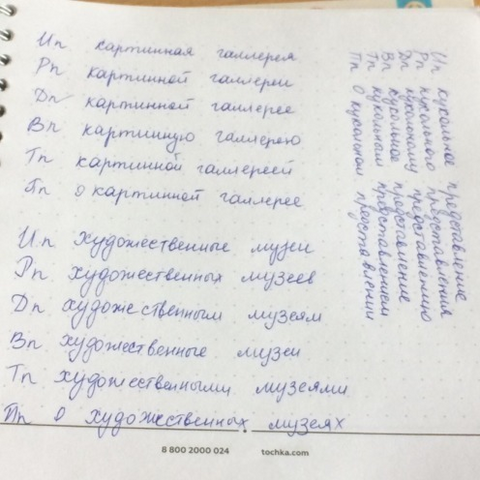 Ип картинная галлерея
Рп картинной галлереи
Дп картинной галлерее
Вп картинную галлерею
Тп картинной галлереей
Пп о картинной галлерее
Ип художественные музеи
Рп художественных музеев
Дп художественным музеям
Вп художественные музеи
Тп художественными музеями
Пп о художественных музеях
Ип кукольное представление
Рп кукольного представления
Дп кукольному представлению
Вп кукольное представление
Тп кукольным представлением
Пп о кукольном представлении
8 800 2000 024 tochka.com